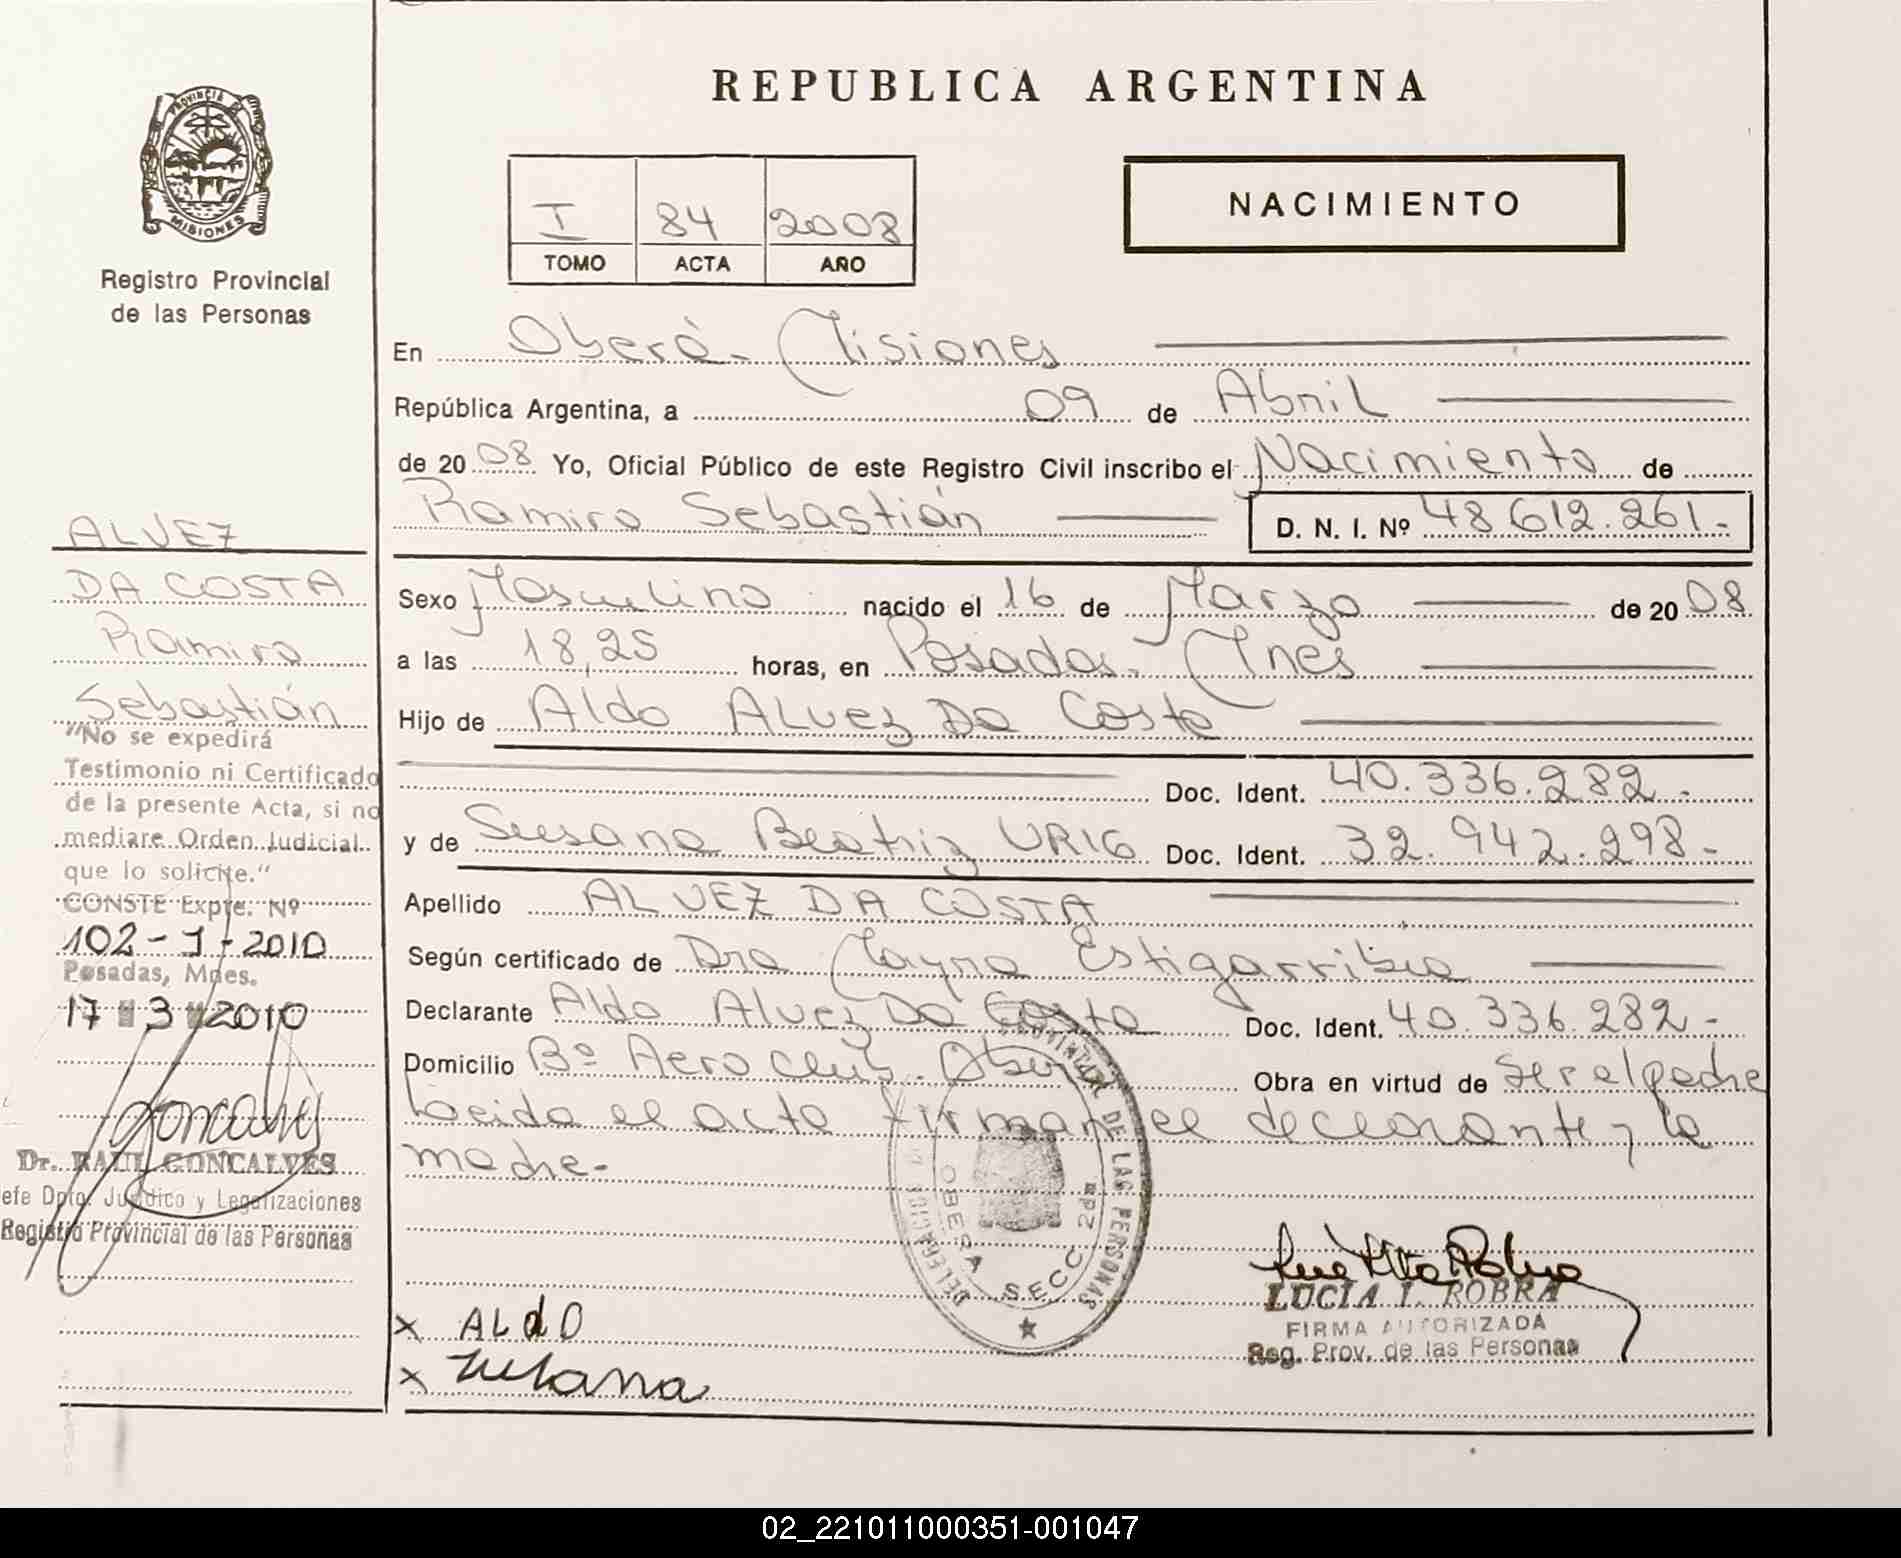 REPUBLICA ARGENTINA
PROVINCIA
MISIONES
Registro Provincial
de las Personas
I 84 2008
TOMO ACTA AÑO
NACIMIENTO
En Oberá - Misiones
República Argentina, a 09 de Abril
de 2008 Yo, Oficial Público de este Registro Civil inscribo el Nacimiento de
Ramiro Sebastián D. N. I. Nº 48.612.261.-
Sexo Masculino nacido el 16 de Marzo de 2008
a las 18,25 horas, en Posadas - Mnes
Hijo de Aldo ALVez Da Costa
Doc. Ident. 40.336.282.-
y de Susana Beatriz URIG Doc. Ident. 32.942.298.-
Apellido ALVEZ DA COSTA
Según certificado de Dra Mayra Estigarribia
Declarante Aldo Alvez Da Costa Doc. Ident. 40.336.282.-
Domicilio Bº Aero Club. Oberá Obra en virtud de ser el padre
Leido el acta firman el declarante y la
madre.-
ALVEZ
DA COSTA
Ramiro
Sebastián
"No se expedirá
Testimonio ni Certificado
de la presente Acta, si no
mediare Orden Judicial
que lo solicite."
CONSTE Expte. Nº
102-J-2010
Posadas, Mnes.
17 3 2010
Goncalves
Dr. RAUL GONCALVES
efe Dpto. Jurídico y Legalizaciones
Registro Provincial de las Personas
PROVINCIAL DE LAS PERSONAS
OBERA SECC 2da
x ALdO
x Susana
LUCIA I. ROBRA
FIRMA AUTORIZADA
Reg. Prov. de las Personas
02_221011000351-001047